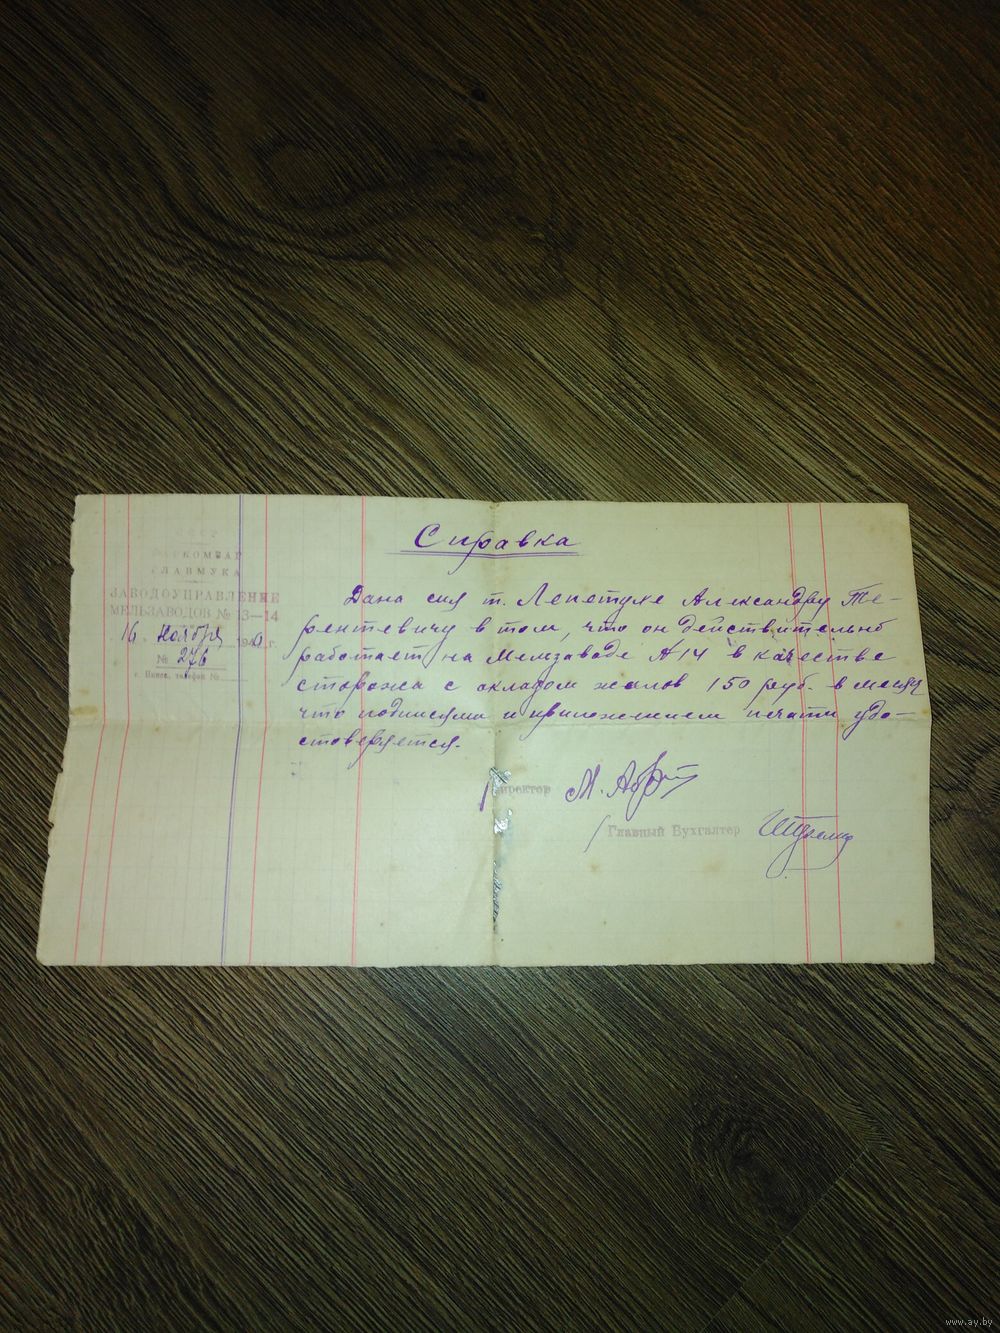 Справка
СССР
НАРКОМЗАГ
ГЛАВМУКА
ЗАВОДОУПРАВЛЕНИЕ
МЕЛЬЗАВОДОВ № 13—14
16 ноября 1940 г.
№ 276
г. Пинск, телефон №
Дана сия т. Лепетухе Александру Те-
рентевичу в том, что он действительно
работает на Мелзаводе №14 в качестве
сторожа с окладом жалов 150 руб. в месяц
что подписями и приложением печати удо-
стоверяется.
Директор М.
Главный Бухгалтер
www.ay.by